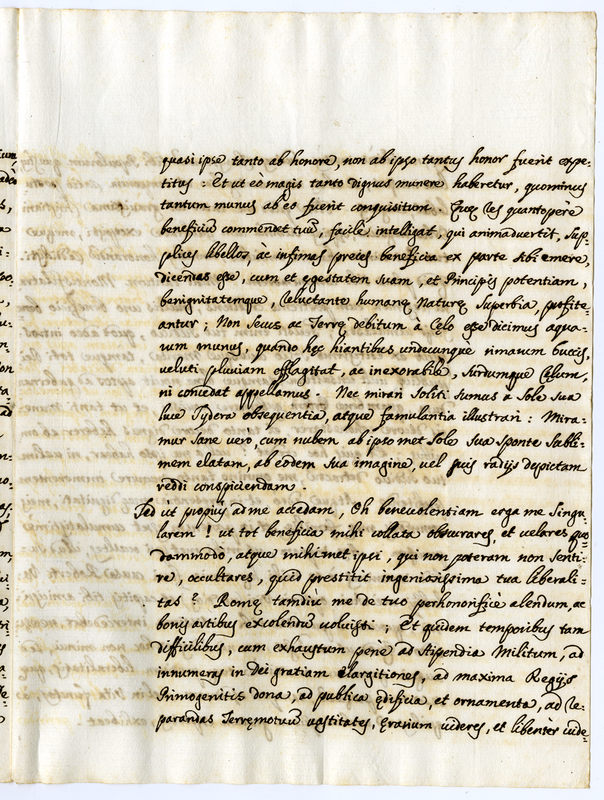 quasi ipse tanto ab honore, non ab ipso tantus honor fuerit expe-
titus : Et ut eò magis tanto dignus munere haberetur, quominus
tantum munus ab eo fuerit conquisitum. Quę res quantopère
beneficiũ commendet tuũ, facile intelligat, qui animadvertit, sup-
plices libellos, àc infimas preces beneficia ex parte sibi emere,
dicendas esse, cum et egestatem suam, et Principis potentiam,
benignitatemque, reluctante humanę naturę superbia, profite-
antur ; Non secus ac Terrę debitum à Cęlo esse dicimus aqua-
rum munus, quando hęc hiantibus undecunque rimarum buccis,
veluti pluviam efflagitat, ac inexorabile, surdumque Cęlum,
ni concedat appellamus. Nec mirari soliti sumus à Sole sua
luce sydera obsequentia, atque famulantia illustrari : Mira-
mur sane verò, cum nubem ab ipsomet Sole sua sponte subli-
mem elatam, ab eodem sua imagine, vel suis radijs depictam
reddi conspiciendam.
Sed ut propius ad me accedam, Oh benevolentiam erga me singu-
larem ! ut tot beneficia mihi collata obscurares, et velares quo-
dammodo, atque mihimet ipsi, qui non poteram non senti-
re, occultares, quid prestitit ingeniosissima tua liberali-
tas ? Romę tamdiù me de tuo perhonorificè alendum, ac
bonis artibus excolendũ voluisti ; Et quidem temporibus tam
difficilibus, cum exhaustum penè ad stipendia Militum, ad
innumeras in Dei gratiam elargitiones, ad maxima Regijs
Primogenitis dona, ad publica ędificia, et ornamenta, ad re-
parandas Terręmotuũ vastitates, Ęrarium videres, et libentèr vide-